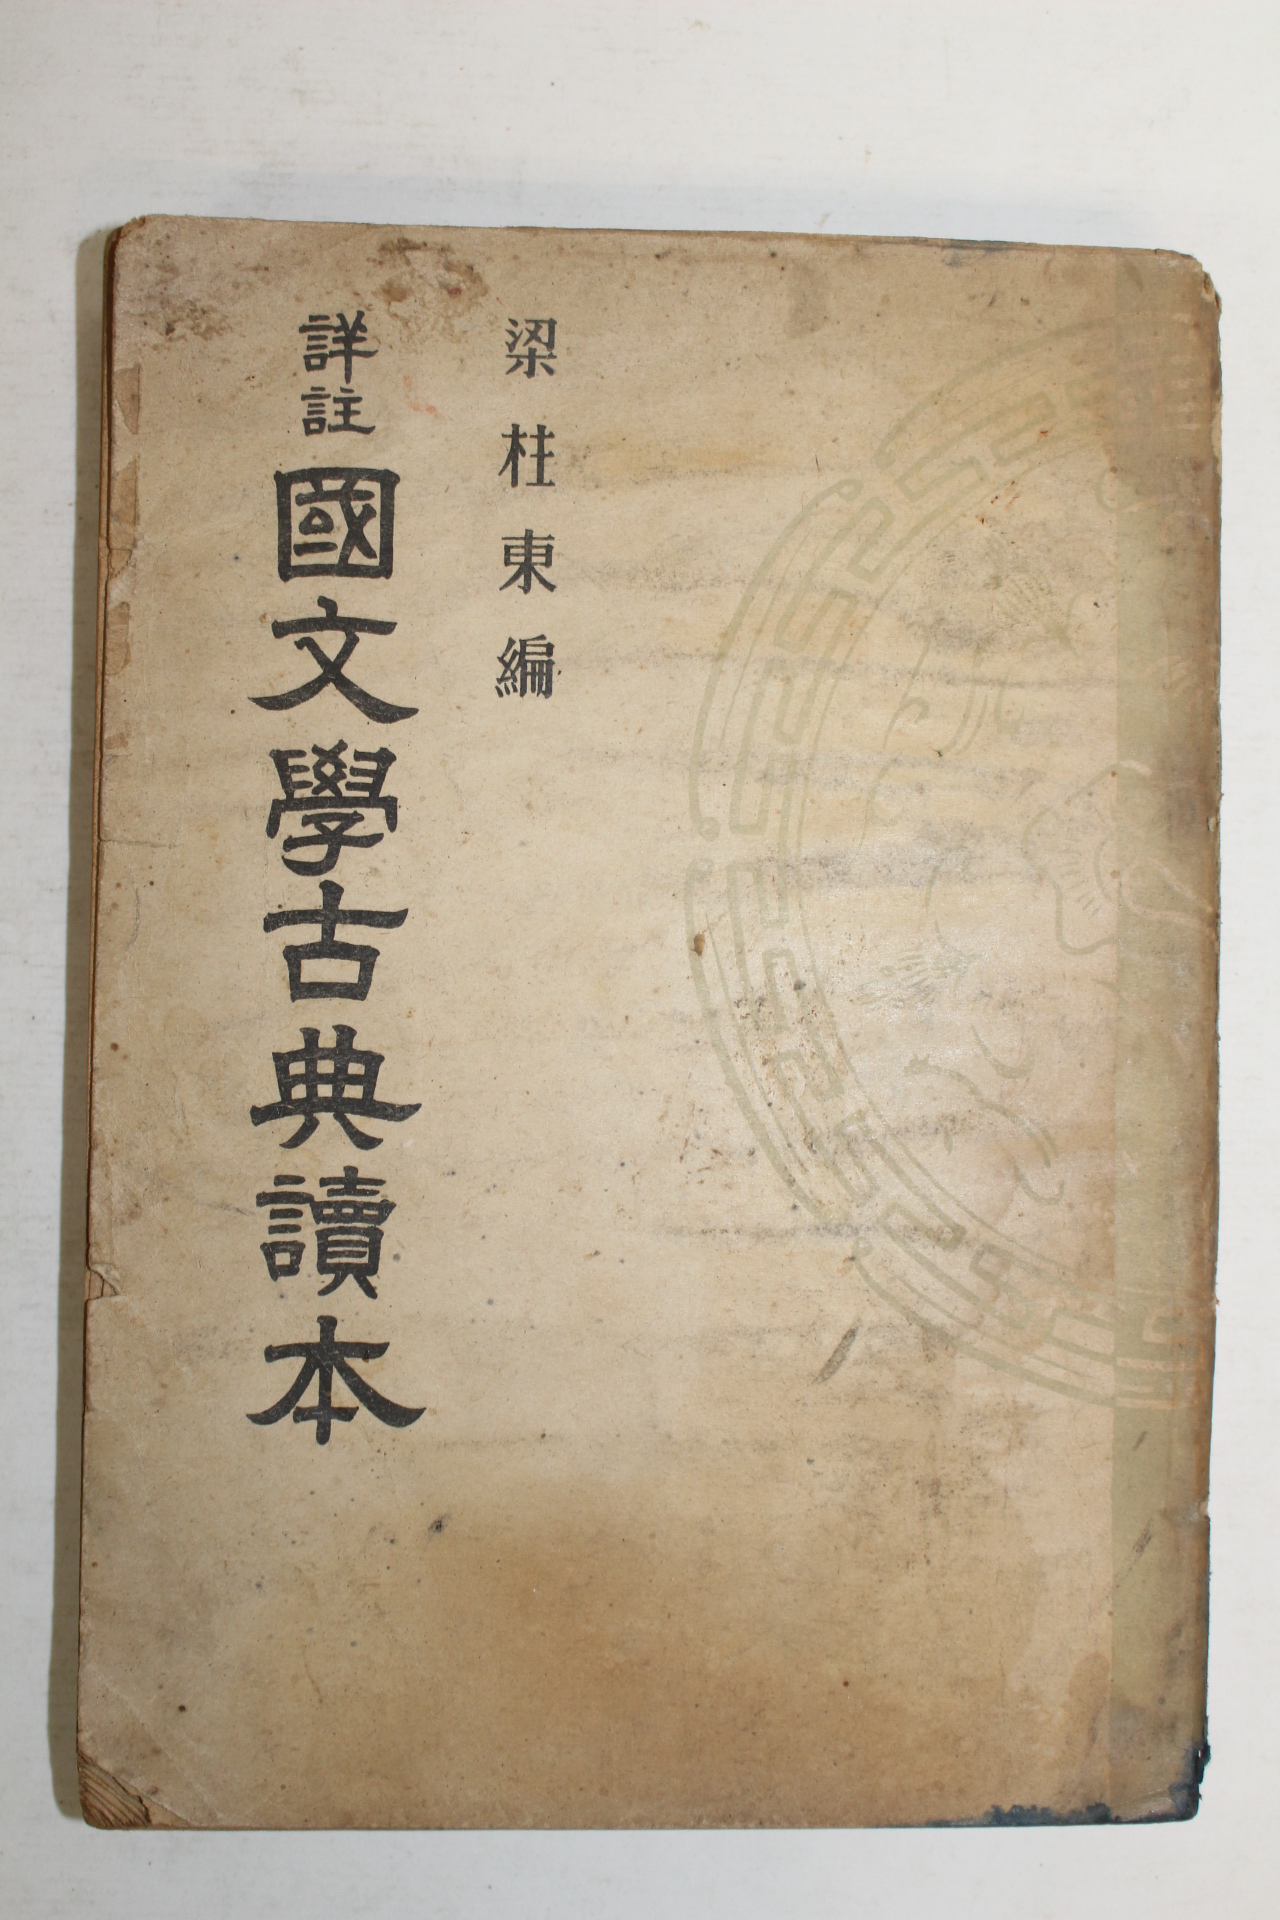 梁柱東編
詳註
國文學古典讀本